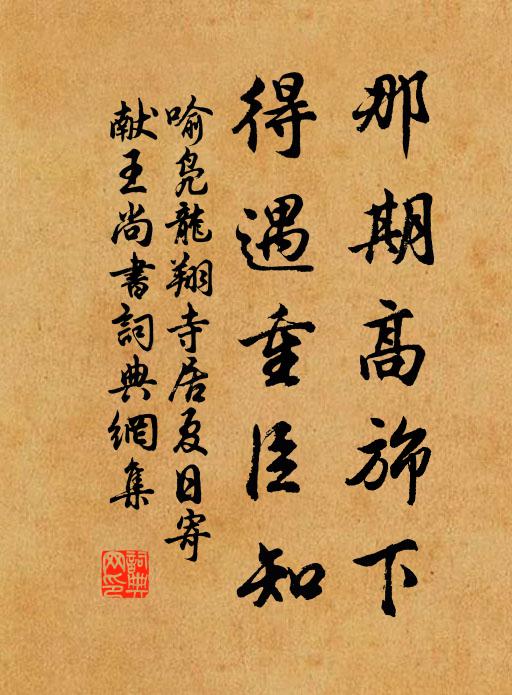 那期高旆下
得遇重臣知
喻凫龍翔寺居夏日寄
献王尚書詞典網集
詞典網印